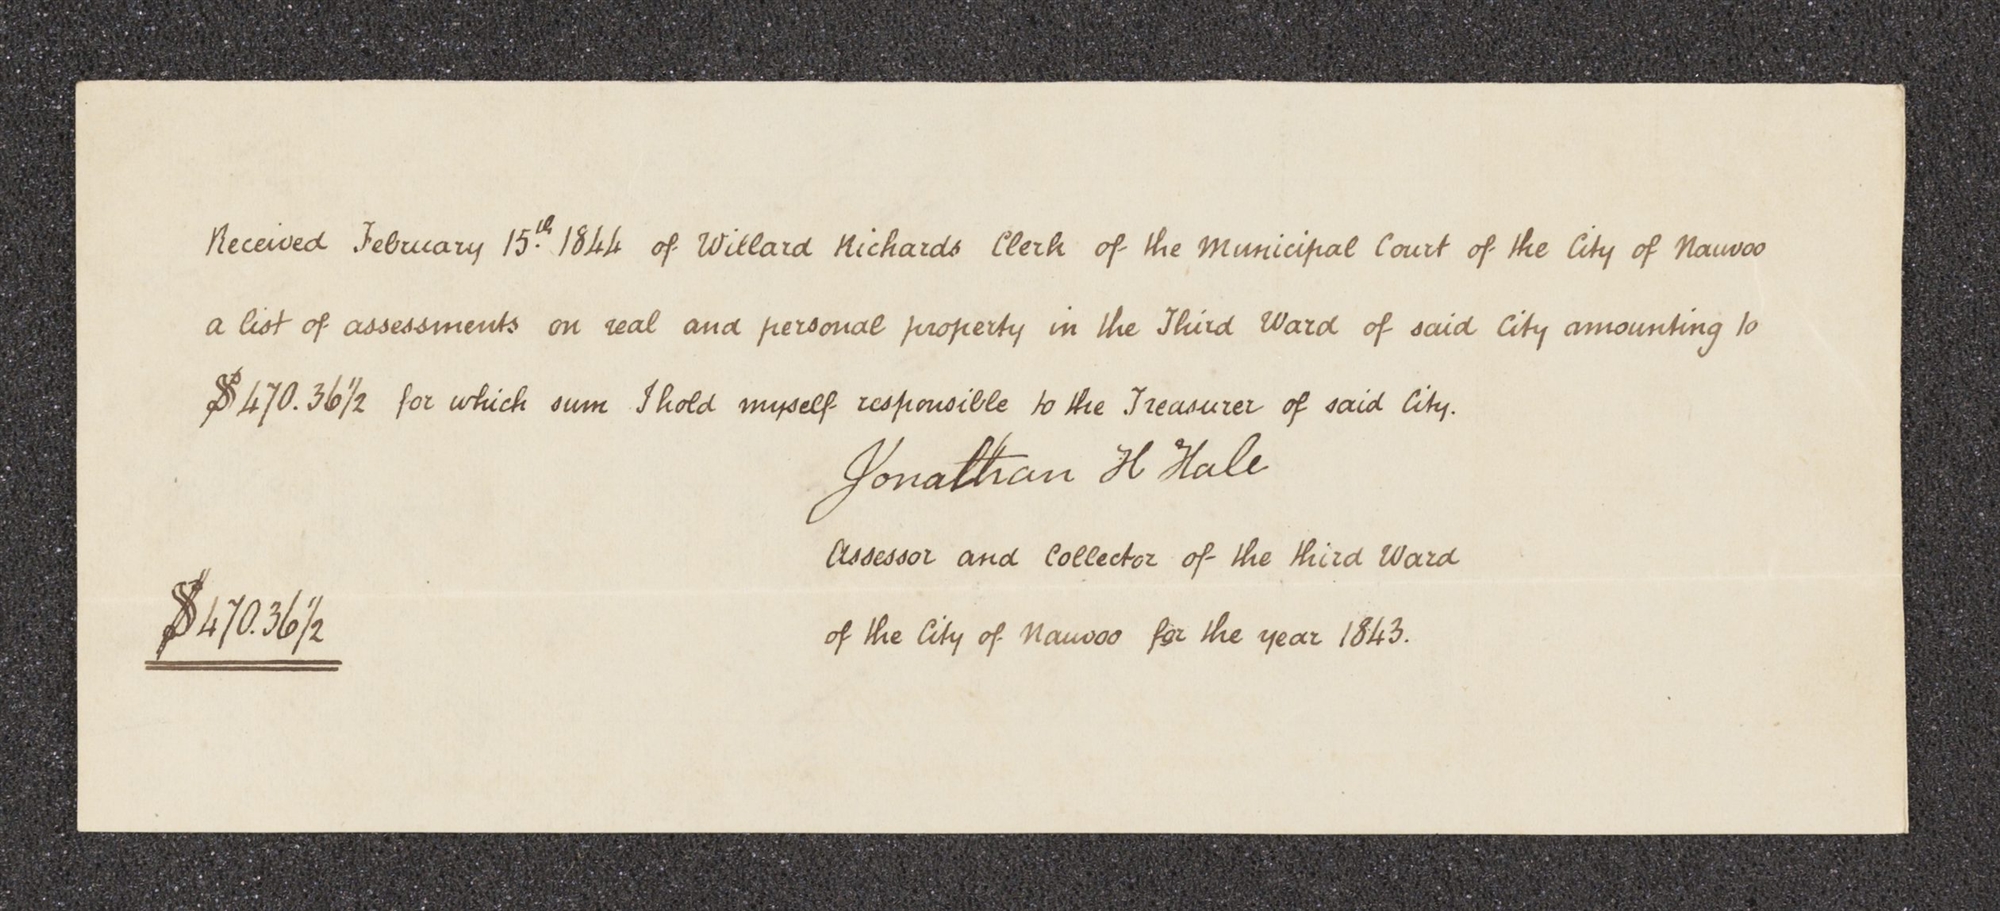 Received February 15.th 1844 of Willard Richards Clerk of the Municipal Court of the City of Nauvoo
a list of assessments on real and personal property in the Third Ward of said City amounting to
$470.36½ for which sum I hold myself responsible to the Treasurer of said City.
Jonathan H Hale
Assessor and Collector of the third Ward
$470.36½
of the City of Nauvoo for the year 1843.